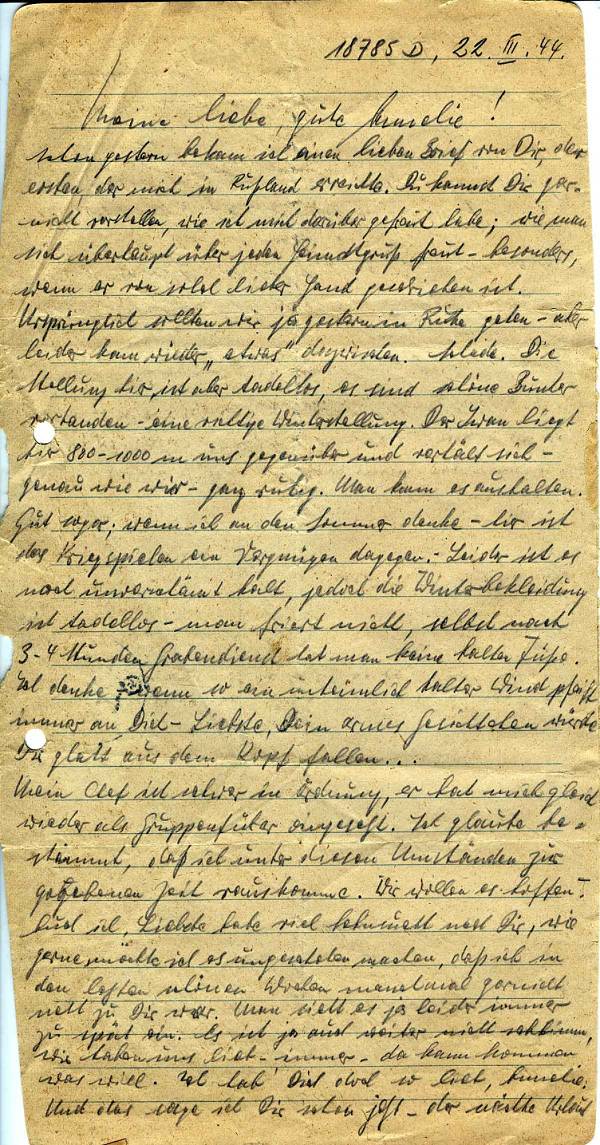 18785 D, 22. III. 44.
Meine liebe, gute Annelie!
Schon gestern bekam ich einen lieben Brief von Dir, den
ersten der mich in Rußland erreichte. Du kannst Dir gar-
nicht vorstellen, wie ich mich darüber gefreut habe; wie man
sich überhaupt über jeden Heimatgruß freut - besonders,
wenn er von solch lieber Hand geschrieben ist.
Ursprünglich sollten wir ja gestern in Ruhe gehen - aber
leider kam wieder „etwas" dazwischen. Schade. Die
Stellung hier, ist aber tadellos, es sind schöne Bunker
vorhanden - eine richtige Winterstellung. Der Iwan liegt
hier 800-1000 m uns gegenüber und verhält sich -
genau wie wir - ganz ruhig. Man kann es aushalten.
Gut sogar; wenn ich an den Sommer denke - hier ist
das Kriegspielen ein Vergnügen dagegen. - Leider ist es
noch unverschämt kalt, jedoch die Winterbekleidung
ist tadellos - man friert nicht, selbst nach
3-4 Stunden Grabendienst hat man keine kalten Füße.
Ich denke - wenn so ein unheimlich kalter Wind pfeift
immer an Dich - Liebste, Dein armes Gesichtchen würde
Dir glatt aus dem Kopf fallen...
Mein Chef ist schwer in Ordnung, er hat mich gleich
wieder als Gruppenführer eingesetzt. Ich glaube be-
stimmt, daß ich unter diesen Umständen zur
gegebenen Zeit rauskomme. Wir wollen es hoffen -.
Auch ich, Liebste habe viel Sehnsucht nach Dir, wie
gerne möchte ich es ungeschehen machen, daß ich in
den letzten schönen Wochen manchmal garnicht
nett zu Dir war. Man sieht es ja leider immer
zu spät ein. Es ist ja auch weiter nicht schlimm,
wir haben uns lieb - immer - da kann kommen
was will. Ich hab' Dich doch so lieb, Annelie.
Und das sage ich Dir schon jetzt - der nächste Urlaub